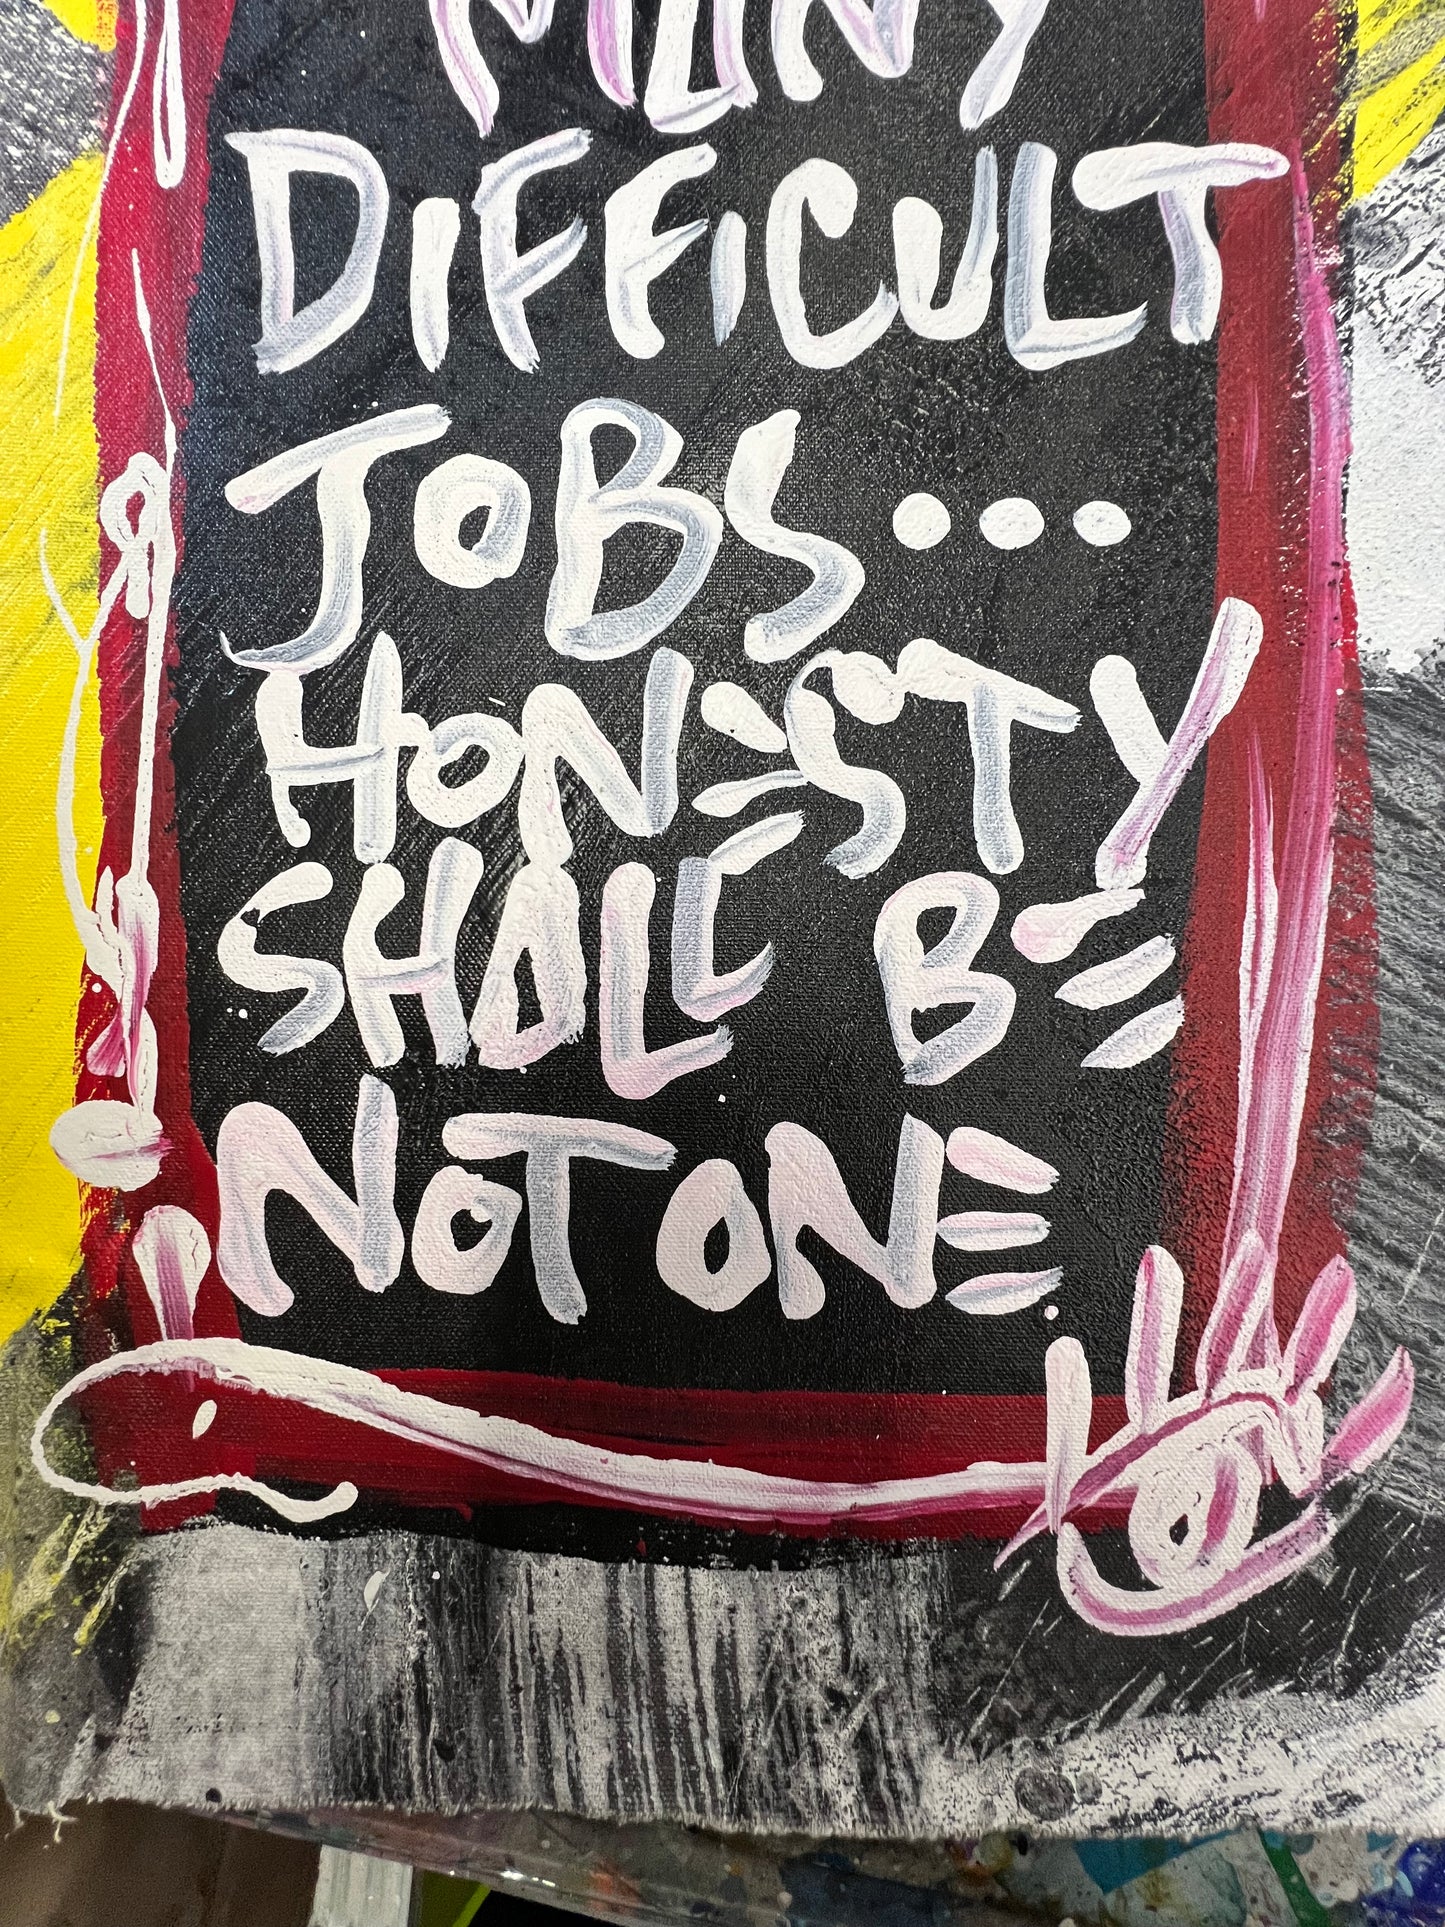 MANY
DIFFICULT
JOBS...
HONESTY
SHALL BE
NOT ONE.